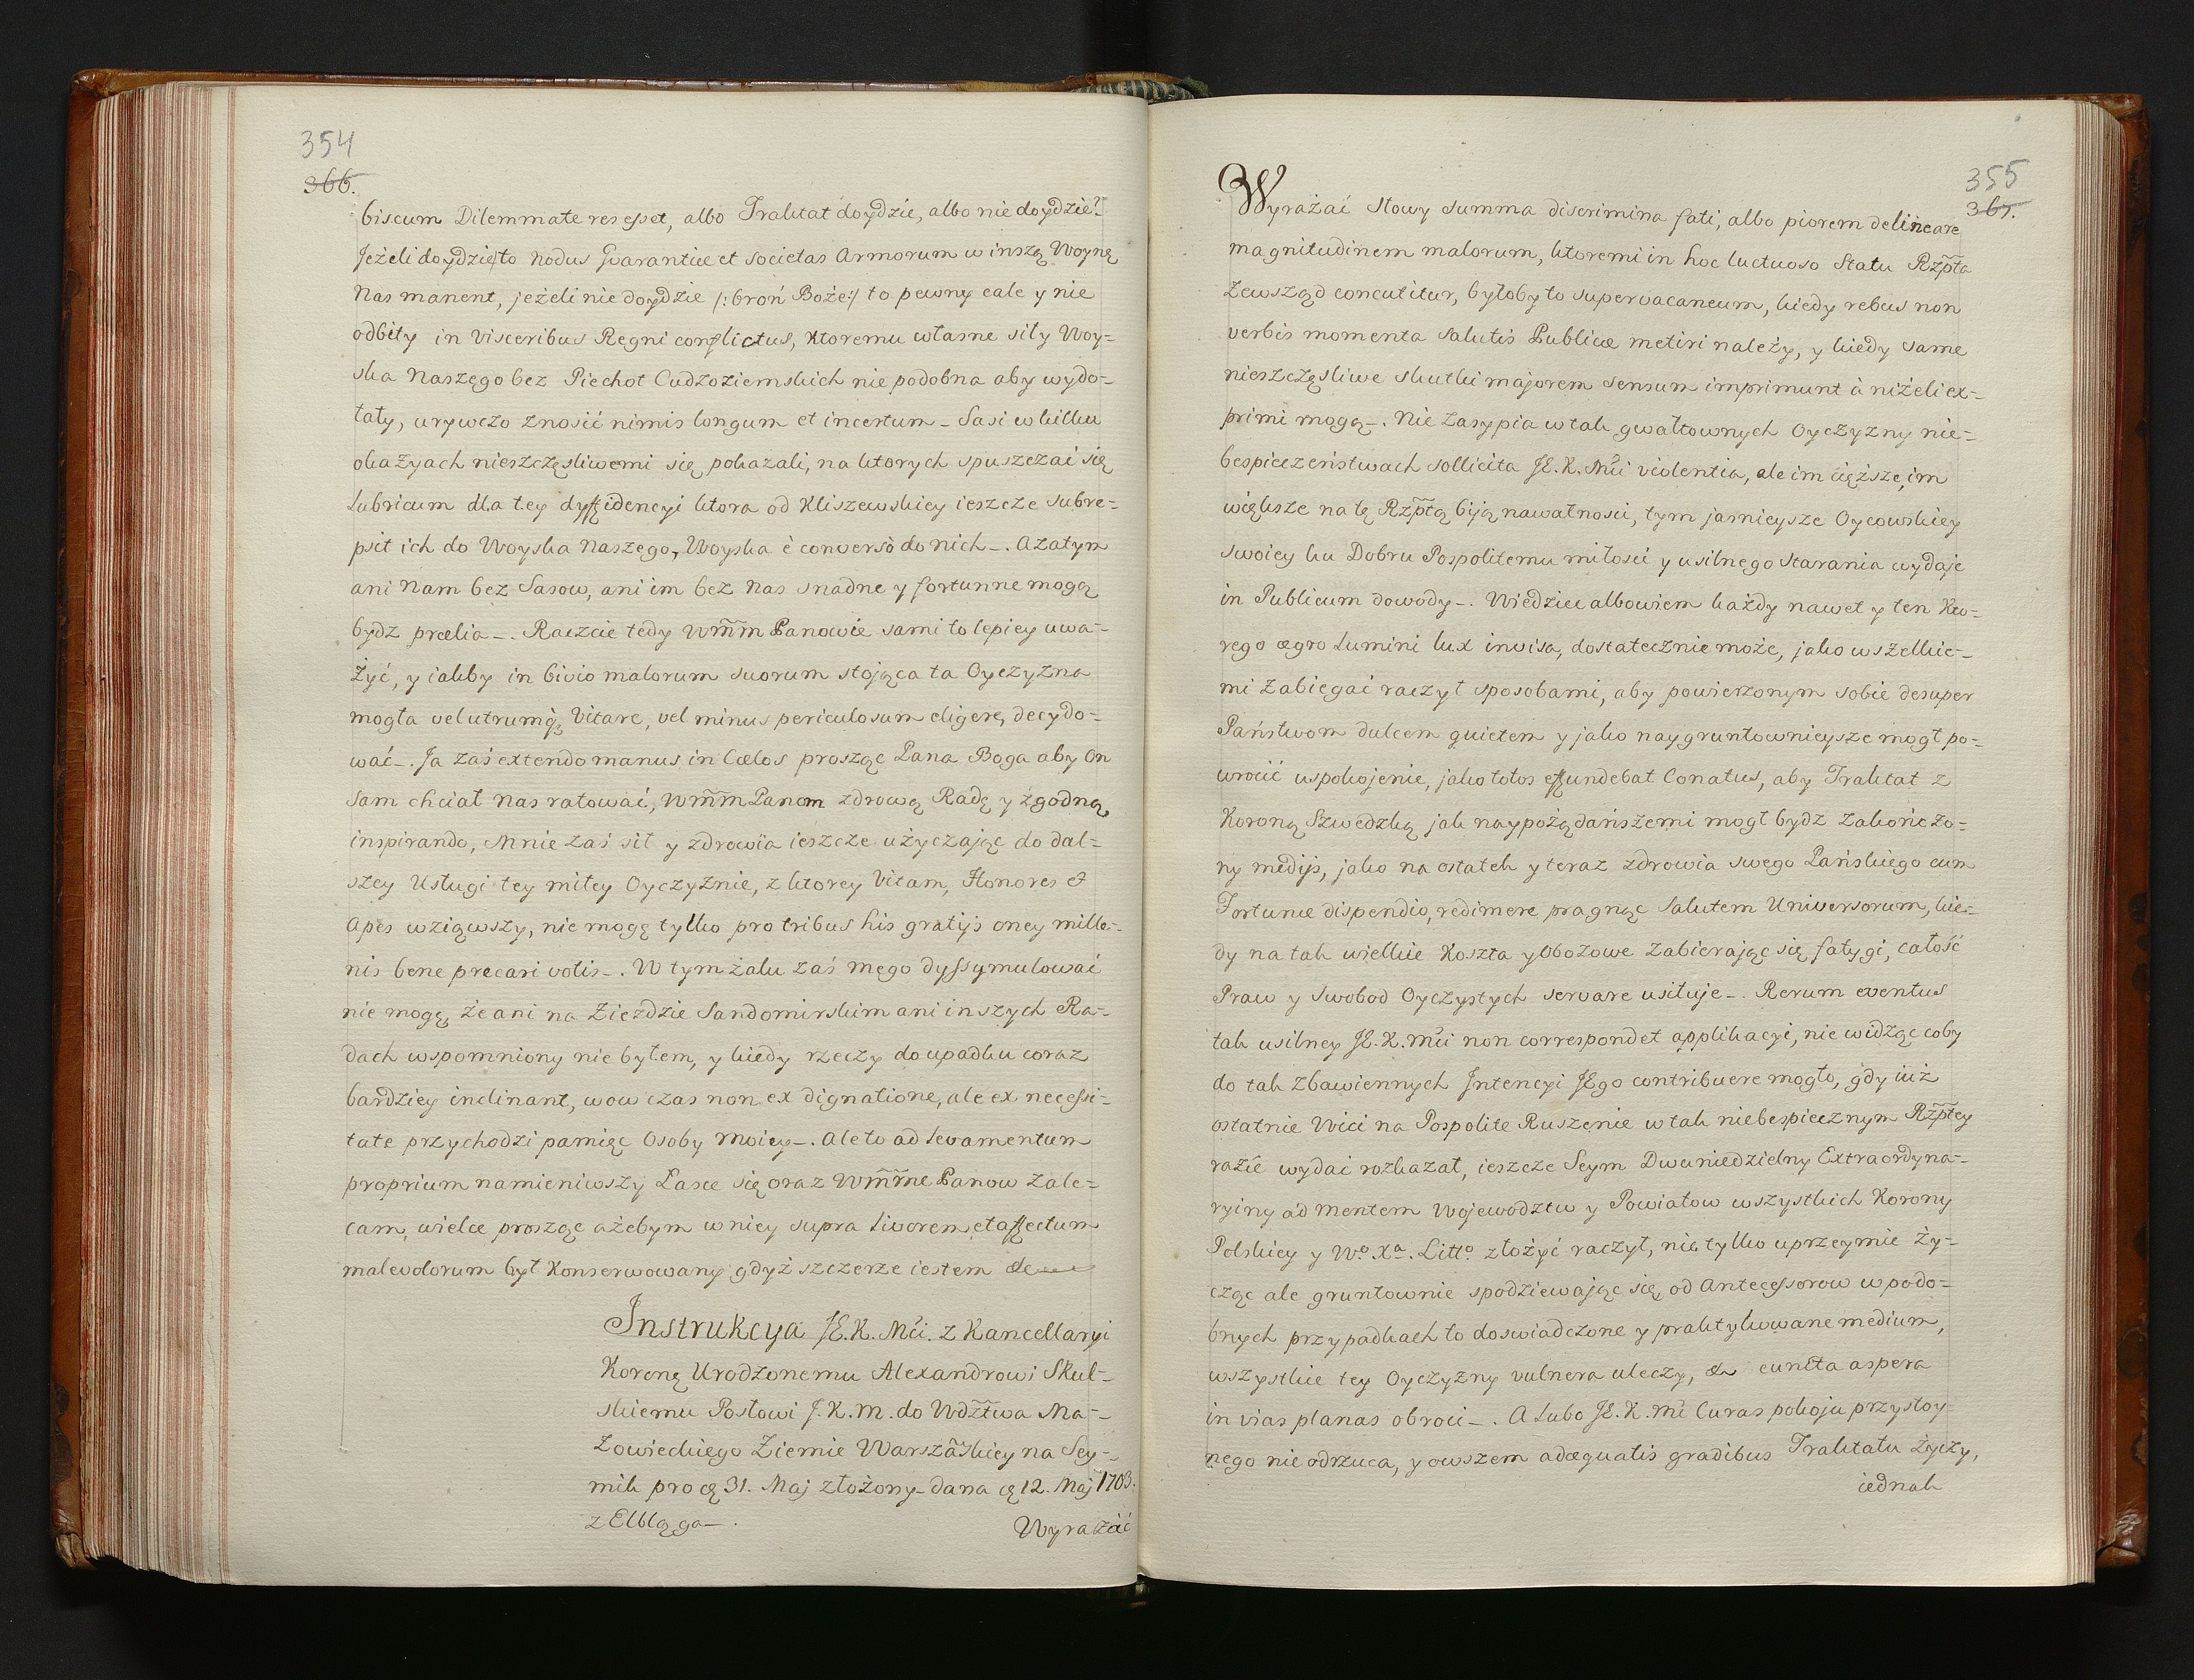 354
366.
biscum Dilemmate res esset, albo Traktat doydzie, albo nie doydzie?
Jeżeli doydzie to nodus Gvarantiæ et societas Armorum w inszą Woynę
nas manent, jeżeli nie doydzie /: broń Boże :/ to pewny cale y nie
odbity in visceribus Regni conflictus, ktoremu własne siły Woy-
ska naszego bez Piechot Cudzoziemskich nie podobna aby wydo-
łały, urywczo znosić nimis longum et incertum _ Sasi w kilku
okazyach nieszczęsliwemi się pokazali, na ktorych spuszczać się
lubricum dla tey dyffidencyi ktora od Kliszewskiey ieszcze subre-
psit ich do Woyska naszego, Woyska è converso do nich _. A zatym
ani nam bez Sasow, ani im bez nas snadne y fortunne mogą
bydz prœlia _. Raczcie tedy Wmm Panowie sami to lepiey uwa-
żyć, y iakby in bivio malorum suorum stojąca ta Oyczyzna
mogła vel utrumq vitare, vel minus periculosum eligere, decydo-
wać _. Ja zaś extendo manus in Cœlos prosząc Pana Boga aby on
sam chciał nas ratować, Wmm Panom zdrową Radę y zgodną
inspirando, Mnie zaś sił y zdrowia ieszcze użyczając do dal-
szey Usługi tey miłey Oyczyznie, z ktorey Vitam, Honores &
Apes wziąwszy, nie mogę tylko pro tribus his gratijs oney mille-
nis bene precari votis _. W tym żalu zaś mego dyssymulować
nie mogę, że ani na Zieździe Sandomirskim ani inszych Ra-
dach wspomniony nie byłem, y kiedy rzeczy do upadku coraz
bardziey inclinant, wow czas non ex dignatione, ale ex necessi-
tate przychodzi pamięc Osoby moiey _. Ale to ad levamentum
proprium namieniwszy Łasce się oraz Wmme Panow zale-
cam, wielce prosząc ażebym w niey supra livorem et affectum
malevolorum był konserwowany gdyż szczerze iestem &
Instrukcya JE.K. Mci. z Kancellaryi
Koroną Urodzonemu Alexandrowi Skul-
skiemu Posłowi J.K.M. do Wdztwa Ma-
zowieckiego Ziemie Warszaskiey na Sey-
mik pro cą 31. Maj złożony _ dana cą 12. Maj 1703.
z Elbląga _.
Wyrażać
355
367.
Wyrażać słowy summa discrimina fati, albo piorem delineare
magnitudinem malorum, ktoremi in hoc luctuoso Statu Rzpta
zewsząd concutitur, byłoby to supervacaneum, kiedy rebus non
verbis momenta Salutis Publicæ metiri należy, y kiedy same
nieszczęsliwe skutki majorem sensum imprimunt à niżeli ex-
primi mogą _. Nie zasypia w tak gwałtownych Oyczyzny nie-
bespieczeństwach sollicita JE. K. Mci violentia, ale im cięższe, im
większe na tę Rzptą biją nawałnosci, tym jasnieysze Oycowskiey
swoiey ku Dobru Pospolitemu miłosci y usilnego starania wydaje
in Publicum dowody _. Wiedziec albowiem każdy nawet y ten kto-
rego ægro lumini lux invisa, dostatecznie może, jako wszelkie-
mi zabiegać raczył sposobami, aby powierzonym sobie desuper
Państwom dulcem quietem y jako naygruntownieysze mogł po-
wrocić uspokojenie, jako totos effundebat Conatus, aby Traktat z
Koroną Szwedzką jak naypożądańszemi mogł bydz zakończo-
ny medijs, jako na ostatek y teraz zdrowia swego Pańskiego cum
Fortunæ dispendio, redimere pragnąc Salutem Universorum, kie-
dy na tak wielkie koszta y Obozowe zabierając się fatygi, całość
Praw y Swobod Oyczystych servare usiłuje _. Rerum eventus
tak usilney JE. K. Mci non correspondet applikacyi, nie widząc coby
do tak zbawiennych Intencyi JEgo contribuere mogło, gdy iuż
ostatnie Wici na Pospolite Ruszenie w tak niebespiecznym Rzptey
razie wydać rozkazał, ieszcze Seym Dwuniedzielny Extraordyna-
ryiny ad mentem Wojewodztw y Powiatow wszystkich Korony
Polskiey y Wo. Xa. Litto. złożyć raczył, nie tylko uprzeymie ży-
cząc ale gruntownie spodziewając się, od Antecessorow w podo-
bnych przypadkach to doswiadczone y praktykowane medium,
wszystkie tey Oyczyzny vulnera uleczy, & cuncta aspera
in vias planas obroci _. A lubo JE. K. Mć Curas pokoju przystoy
nego nie odrzuca, y owszem adæquatis gradibus Traktatu życzy,
iednak